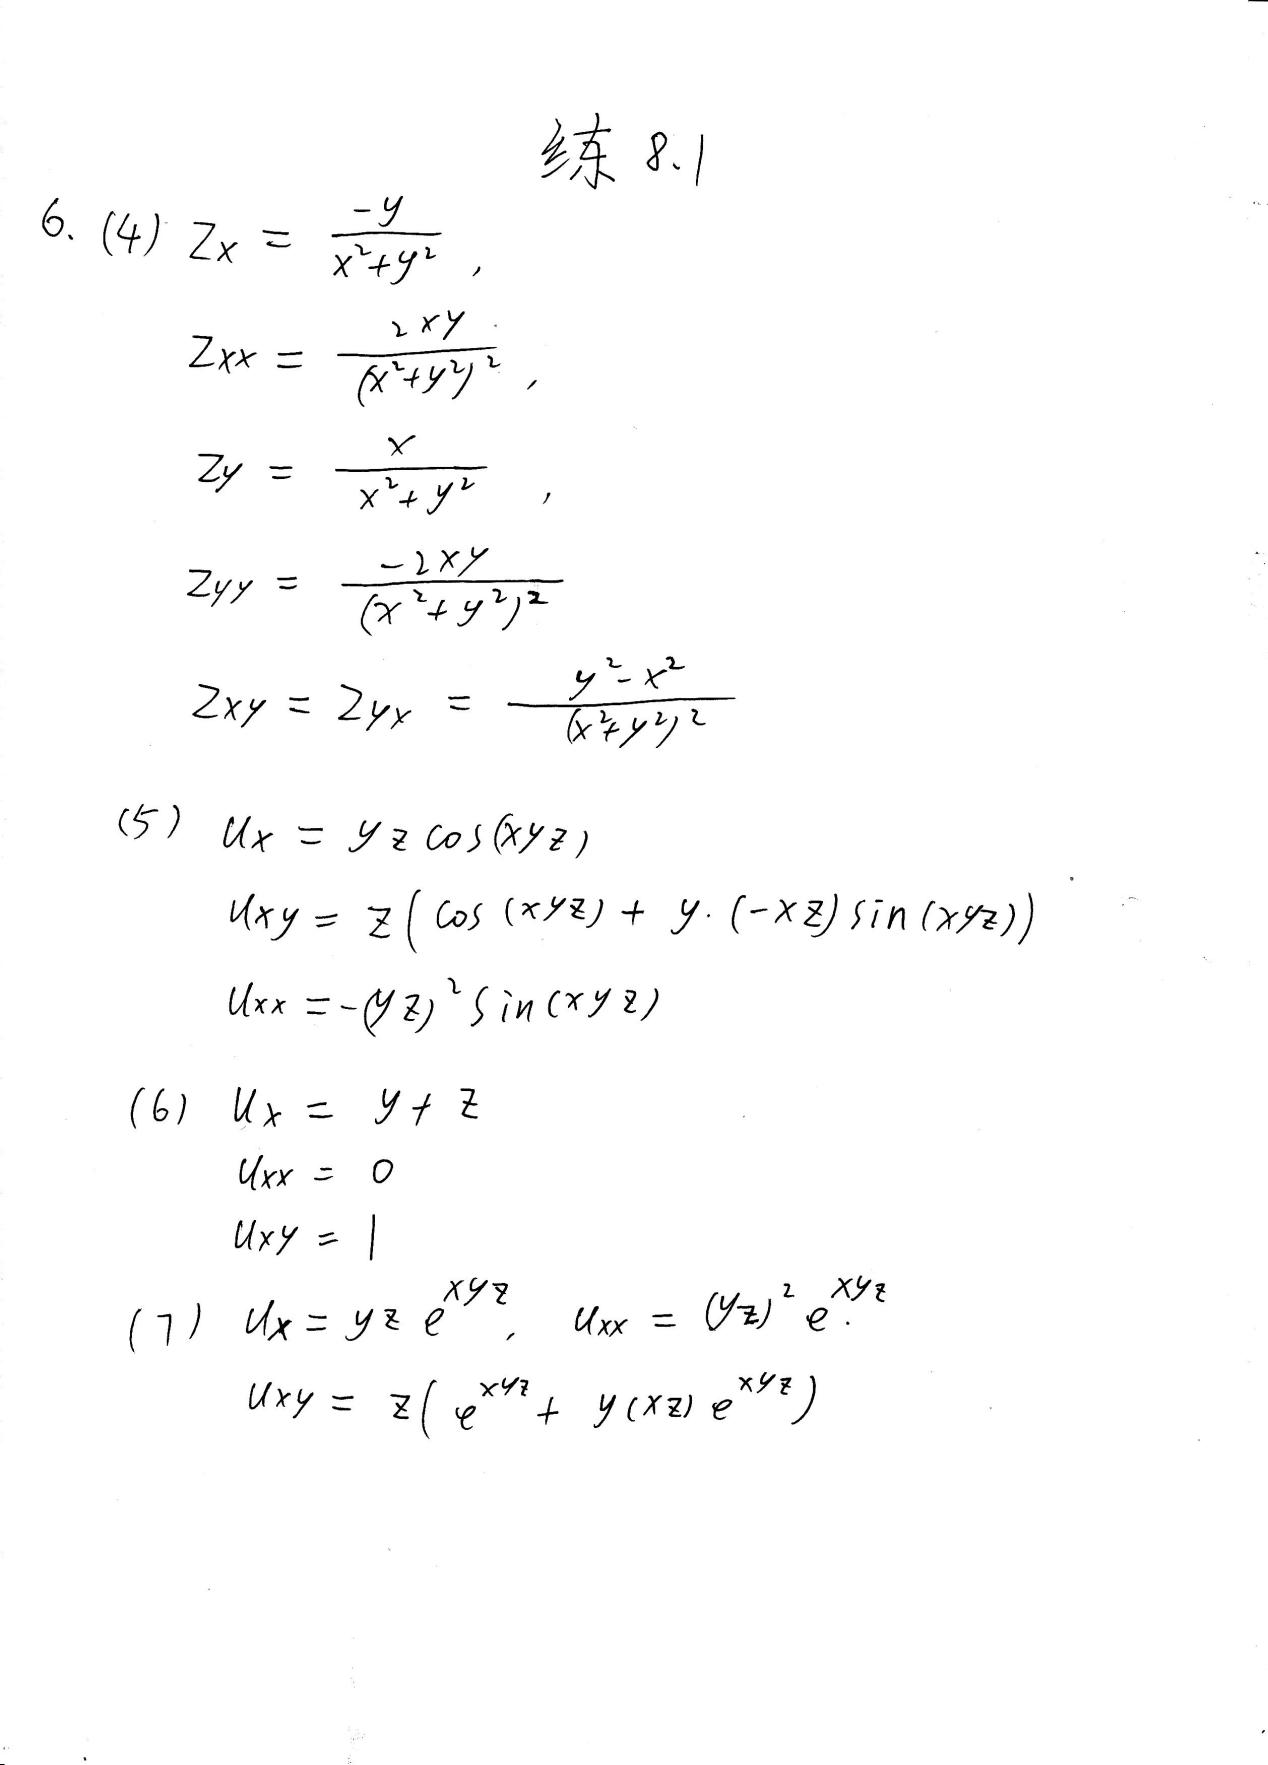 练 8.1
6. (4) Zx = -y / x²+y² ,
Zxx = 2xy / (x²+y²)² ,
Zy = x / x²+y² ,
Zyy = -2xy / (x²+y²)²
Zxy = Zyx = y²-x² / (x²+y²)²
(5) Ux = yz cos(xyz)
Uxy = z( cos (xyz) + y·(-xz) sin (xyz))
Uxx = -(yz)² sin (xyz)
(6) Ux = y + z
Uxx = 0
Uxy = 1
(7) Ux = yz e^xyz, Uxx = (yz)² e^xyz.
Uxy = z( e^xyz + y(xz) e^xyz )